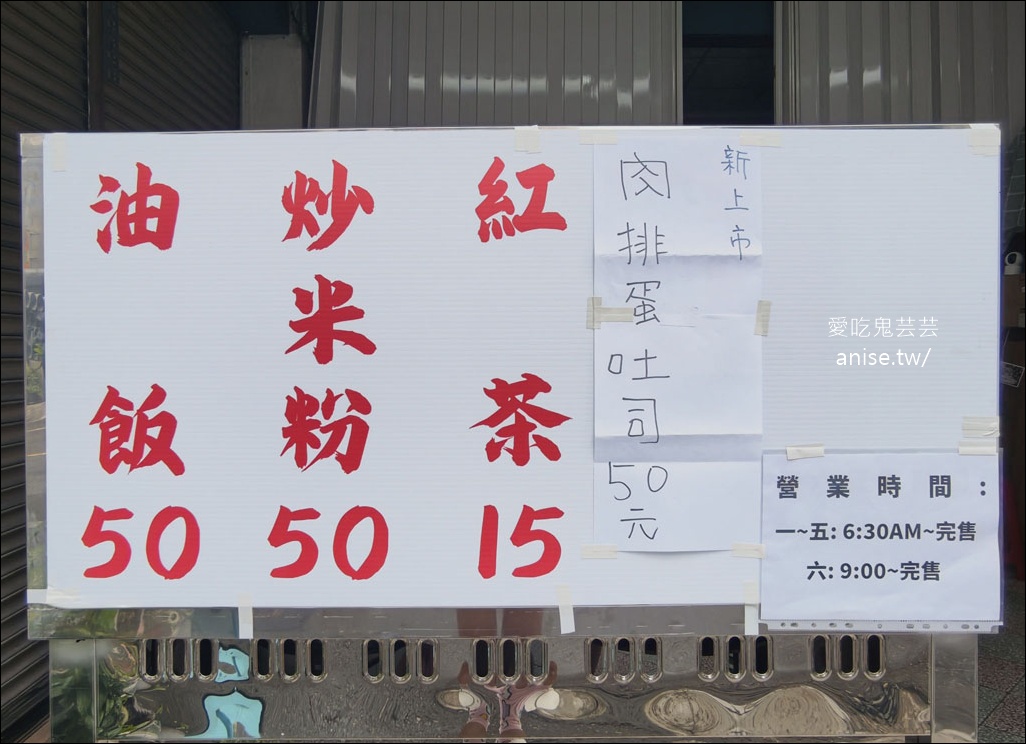 油飯50
炒米粉50
紅茶15
新上市
肉排蛋吐司50元
愛吃鬼芸芸
anise.tw/
營業時間:
一~五: 6:30AM~完售
六: 9:00~完售